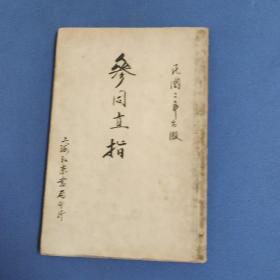 民國二年出版
參同直指
上海江東書局印行